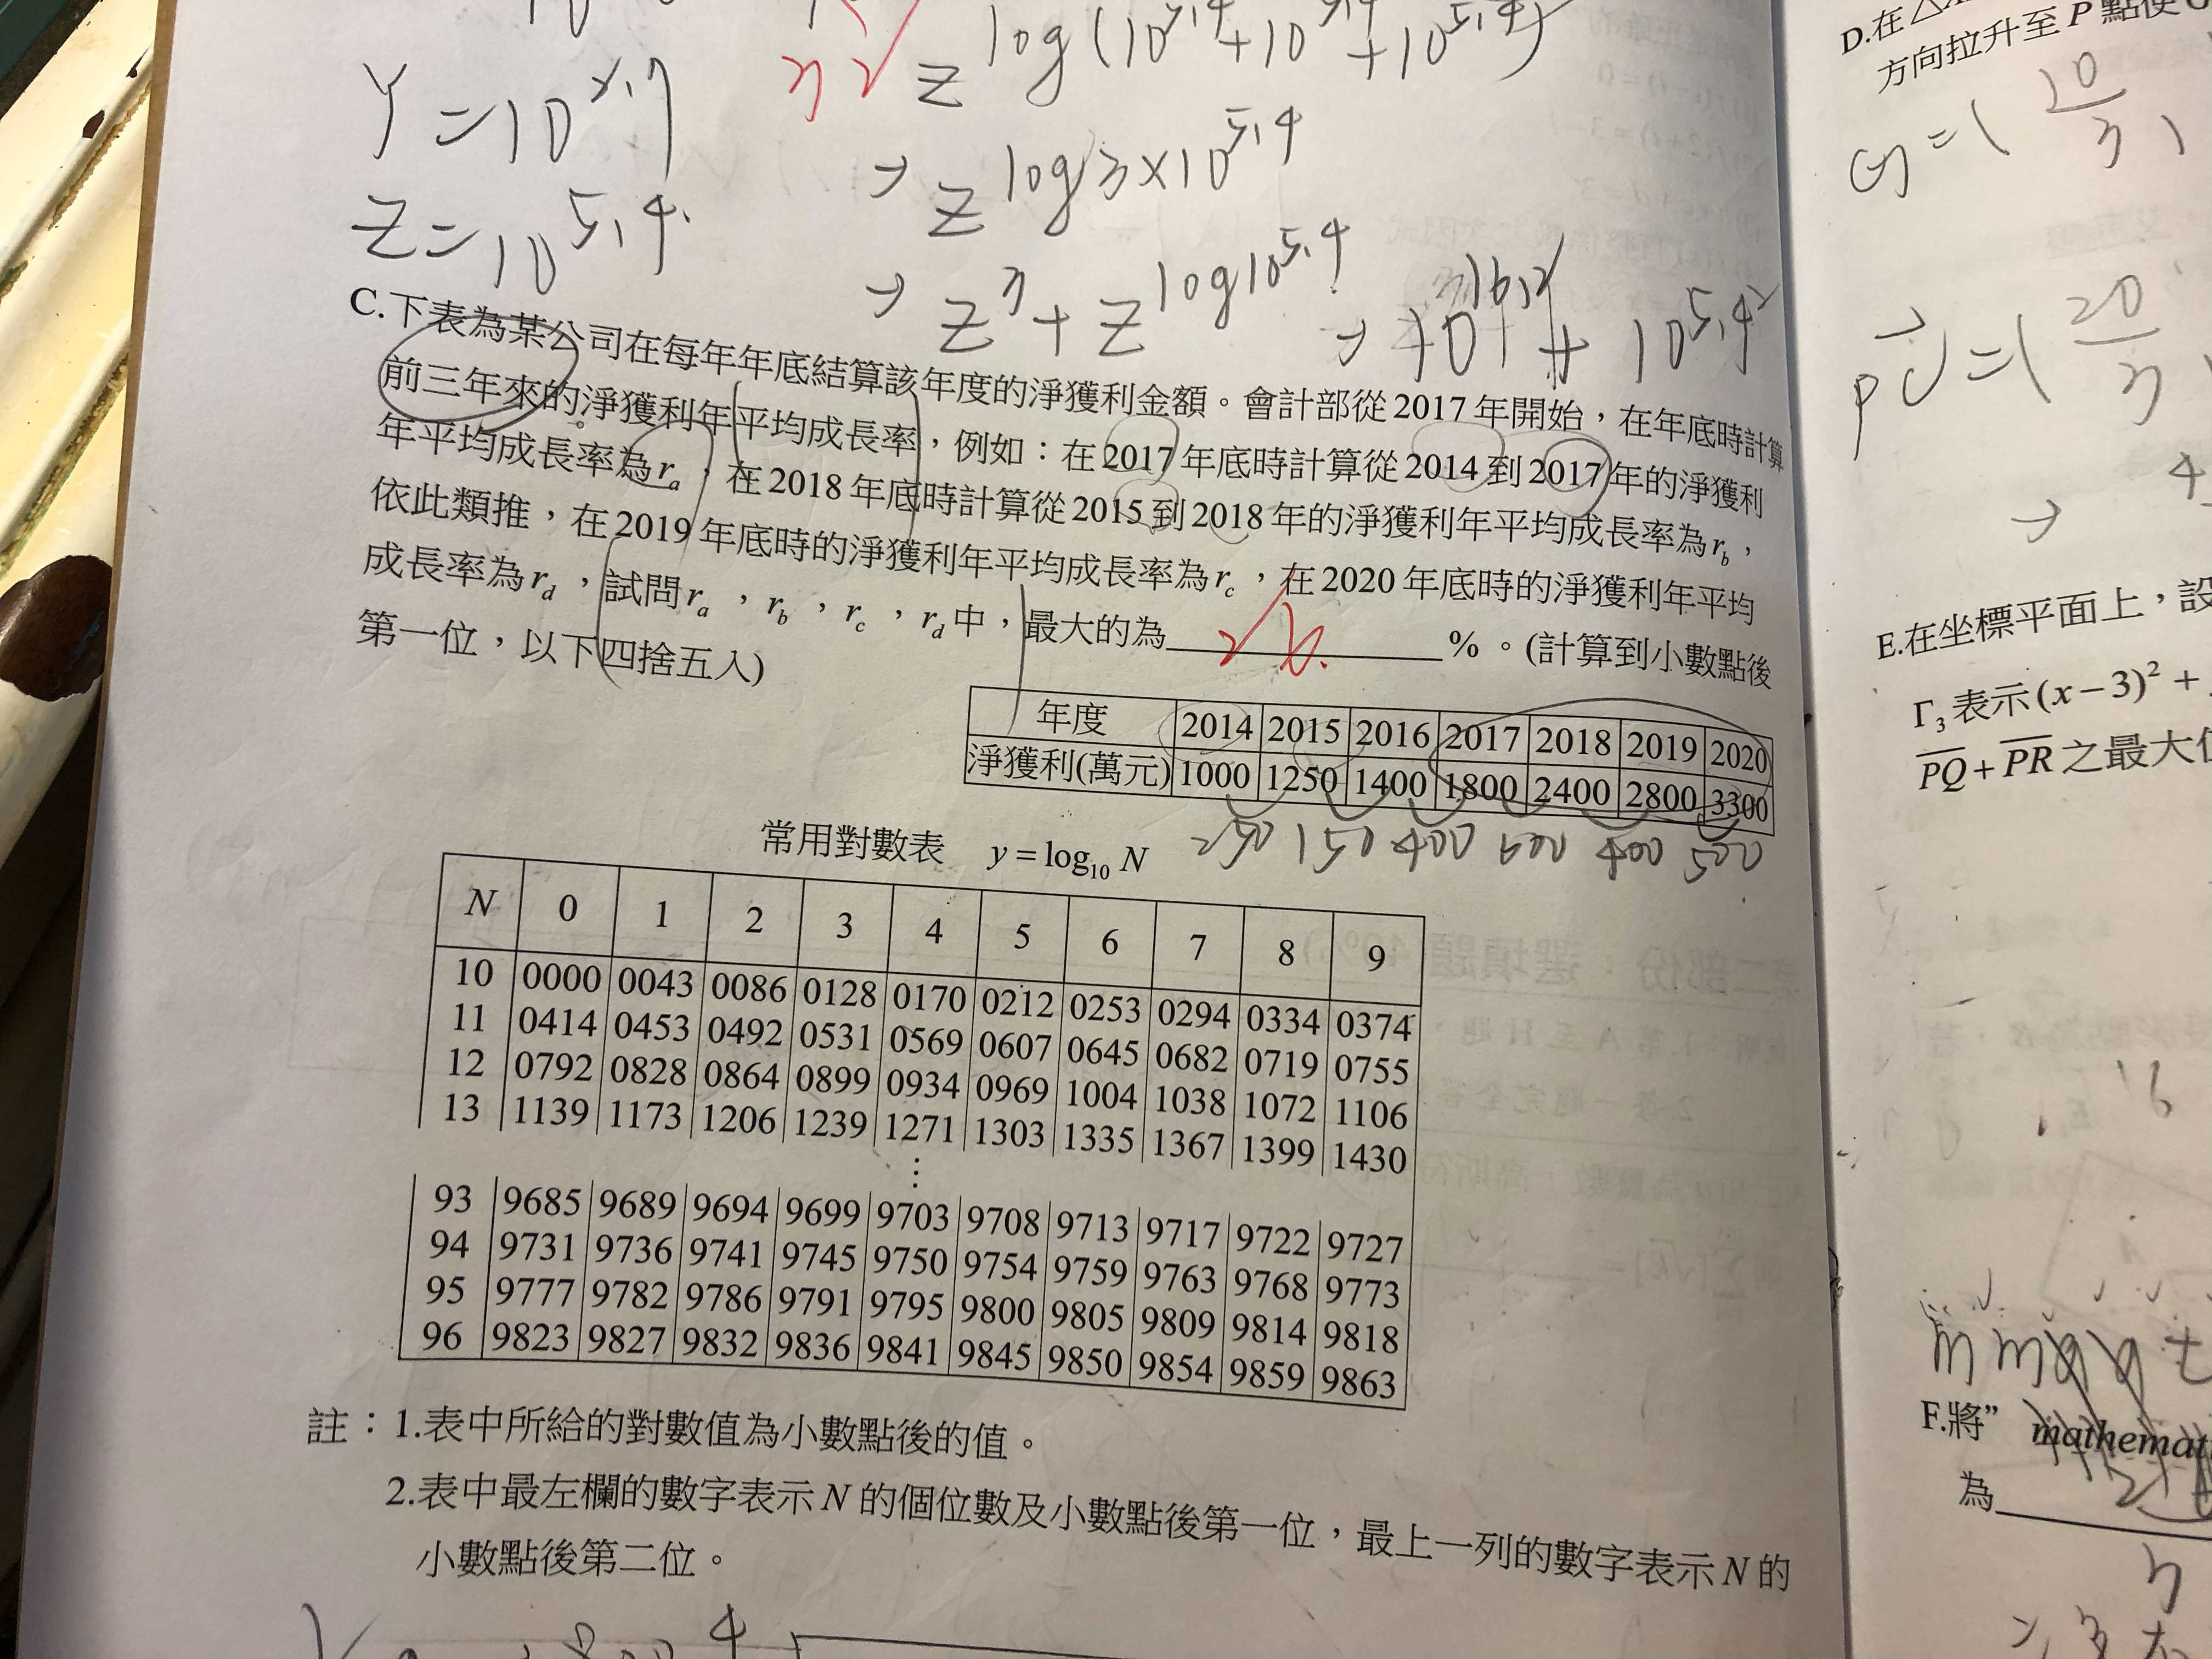 log(10^5.4+10^5.4+10^5.4)
Y=10
z
Z=10^5.4
→ z log3×10^5.4
→ z³+z^log10^5.4
→ 10^16.2 + 10^5.4²
C.下表為某公司在每年年底結算該年度的淨獲利金額。會計部從2017年開始，在年底時計算
前三年來的淨獲利年平均成長率，例如：在2017年底時計算從2014到2017年的淨獲利
年平均成長率為r_a，在2018年底時計算從2015到2018年的淨獲利年平均成長率為r_b，
依此類推，在2019年底時的淨獲利年平均成長率為r_c，在2020年底時的淨獲利年平均
成長率為r_d，試問r_a，r_b，r_c，r_d中，最大的為________%。(計算到小數點後
第一位，以下四捨五入)
年度 2014 2015 2016 2017 2018 2019 2020
淨獲利(萬元) 1000 1250 1400 1800 2400 2800 3300
250 150 400 600 400 500
常用對數表 y=log₁₀ N
N 0 1 2 3 4 5 6 7 8 9
10 0000 0043 0086 0128 0170 0212 0253 0294 0334 0374
11 0414 0453 0492 0531 0569 0607 0645 0682 0719 0755
12 0792 0828 0864 0899 0934 0969 1004 1038 1072 1106
13 1139 1173 1206 1239 1271 1303 1335 1367 1399 1430
⋮
93 9685 9689 9694 9699 9703 9708 9713 9717 9722 9727
94 9731 9736 9741 9745 9750 9754 9759 9763 9768 9773
95 9777 9782 9786 9791 9795 9800 9805 9809 9814 9818
96 9823 9827 9832 9836 9841 9845 9850 9854 9859 9863
註：1.表中所給的對數值為小數點後的值。
2.表中最左欄的數字表示N的個位數及小數點後第一位，最上一列的數字表示N的
小數點後第二位。
D.在△
方向拉升至P點使
G=(20/3,
E.在坐標平面上，設
Γ₃表示(x−3)²+
PQ+PR之最大
F.將"mathemat
為